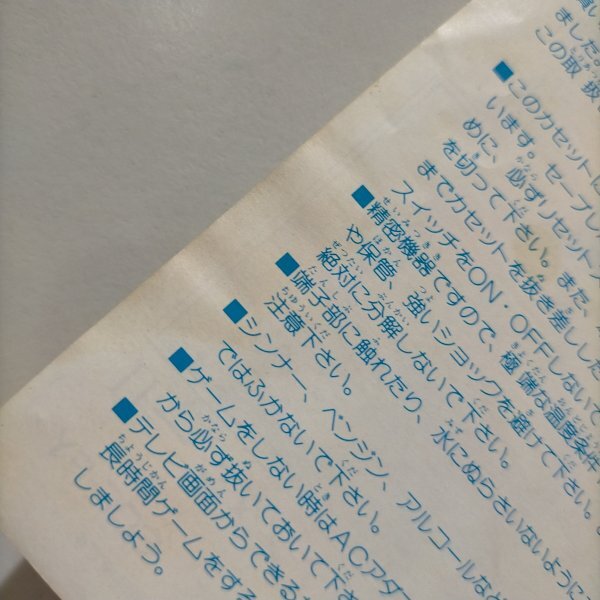 ました。
この取扱
■このカセットに
います。セーブし
めに、必ずリセット
を切って下さい。また、
までカセットを抜き差しした
スイッチをON・OFFしないで
■精密機器ですので、極端な温度条件
や保管、強いショックを避けて下さい。
絶対に分解しないで下さい。
■端子部に触れたり、水にぬらさいないように
注意下さい。
■シンナー、ベンジン、アルコールなど
ではふかないで下さい。
■ゲームをしない時はACアダ
から必ず抜いておいて下さ
■テレビ画面からできる
長時間ゲームをする
しましょう。